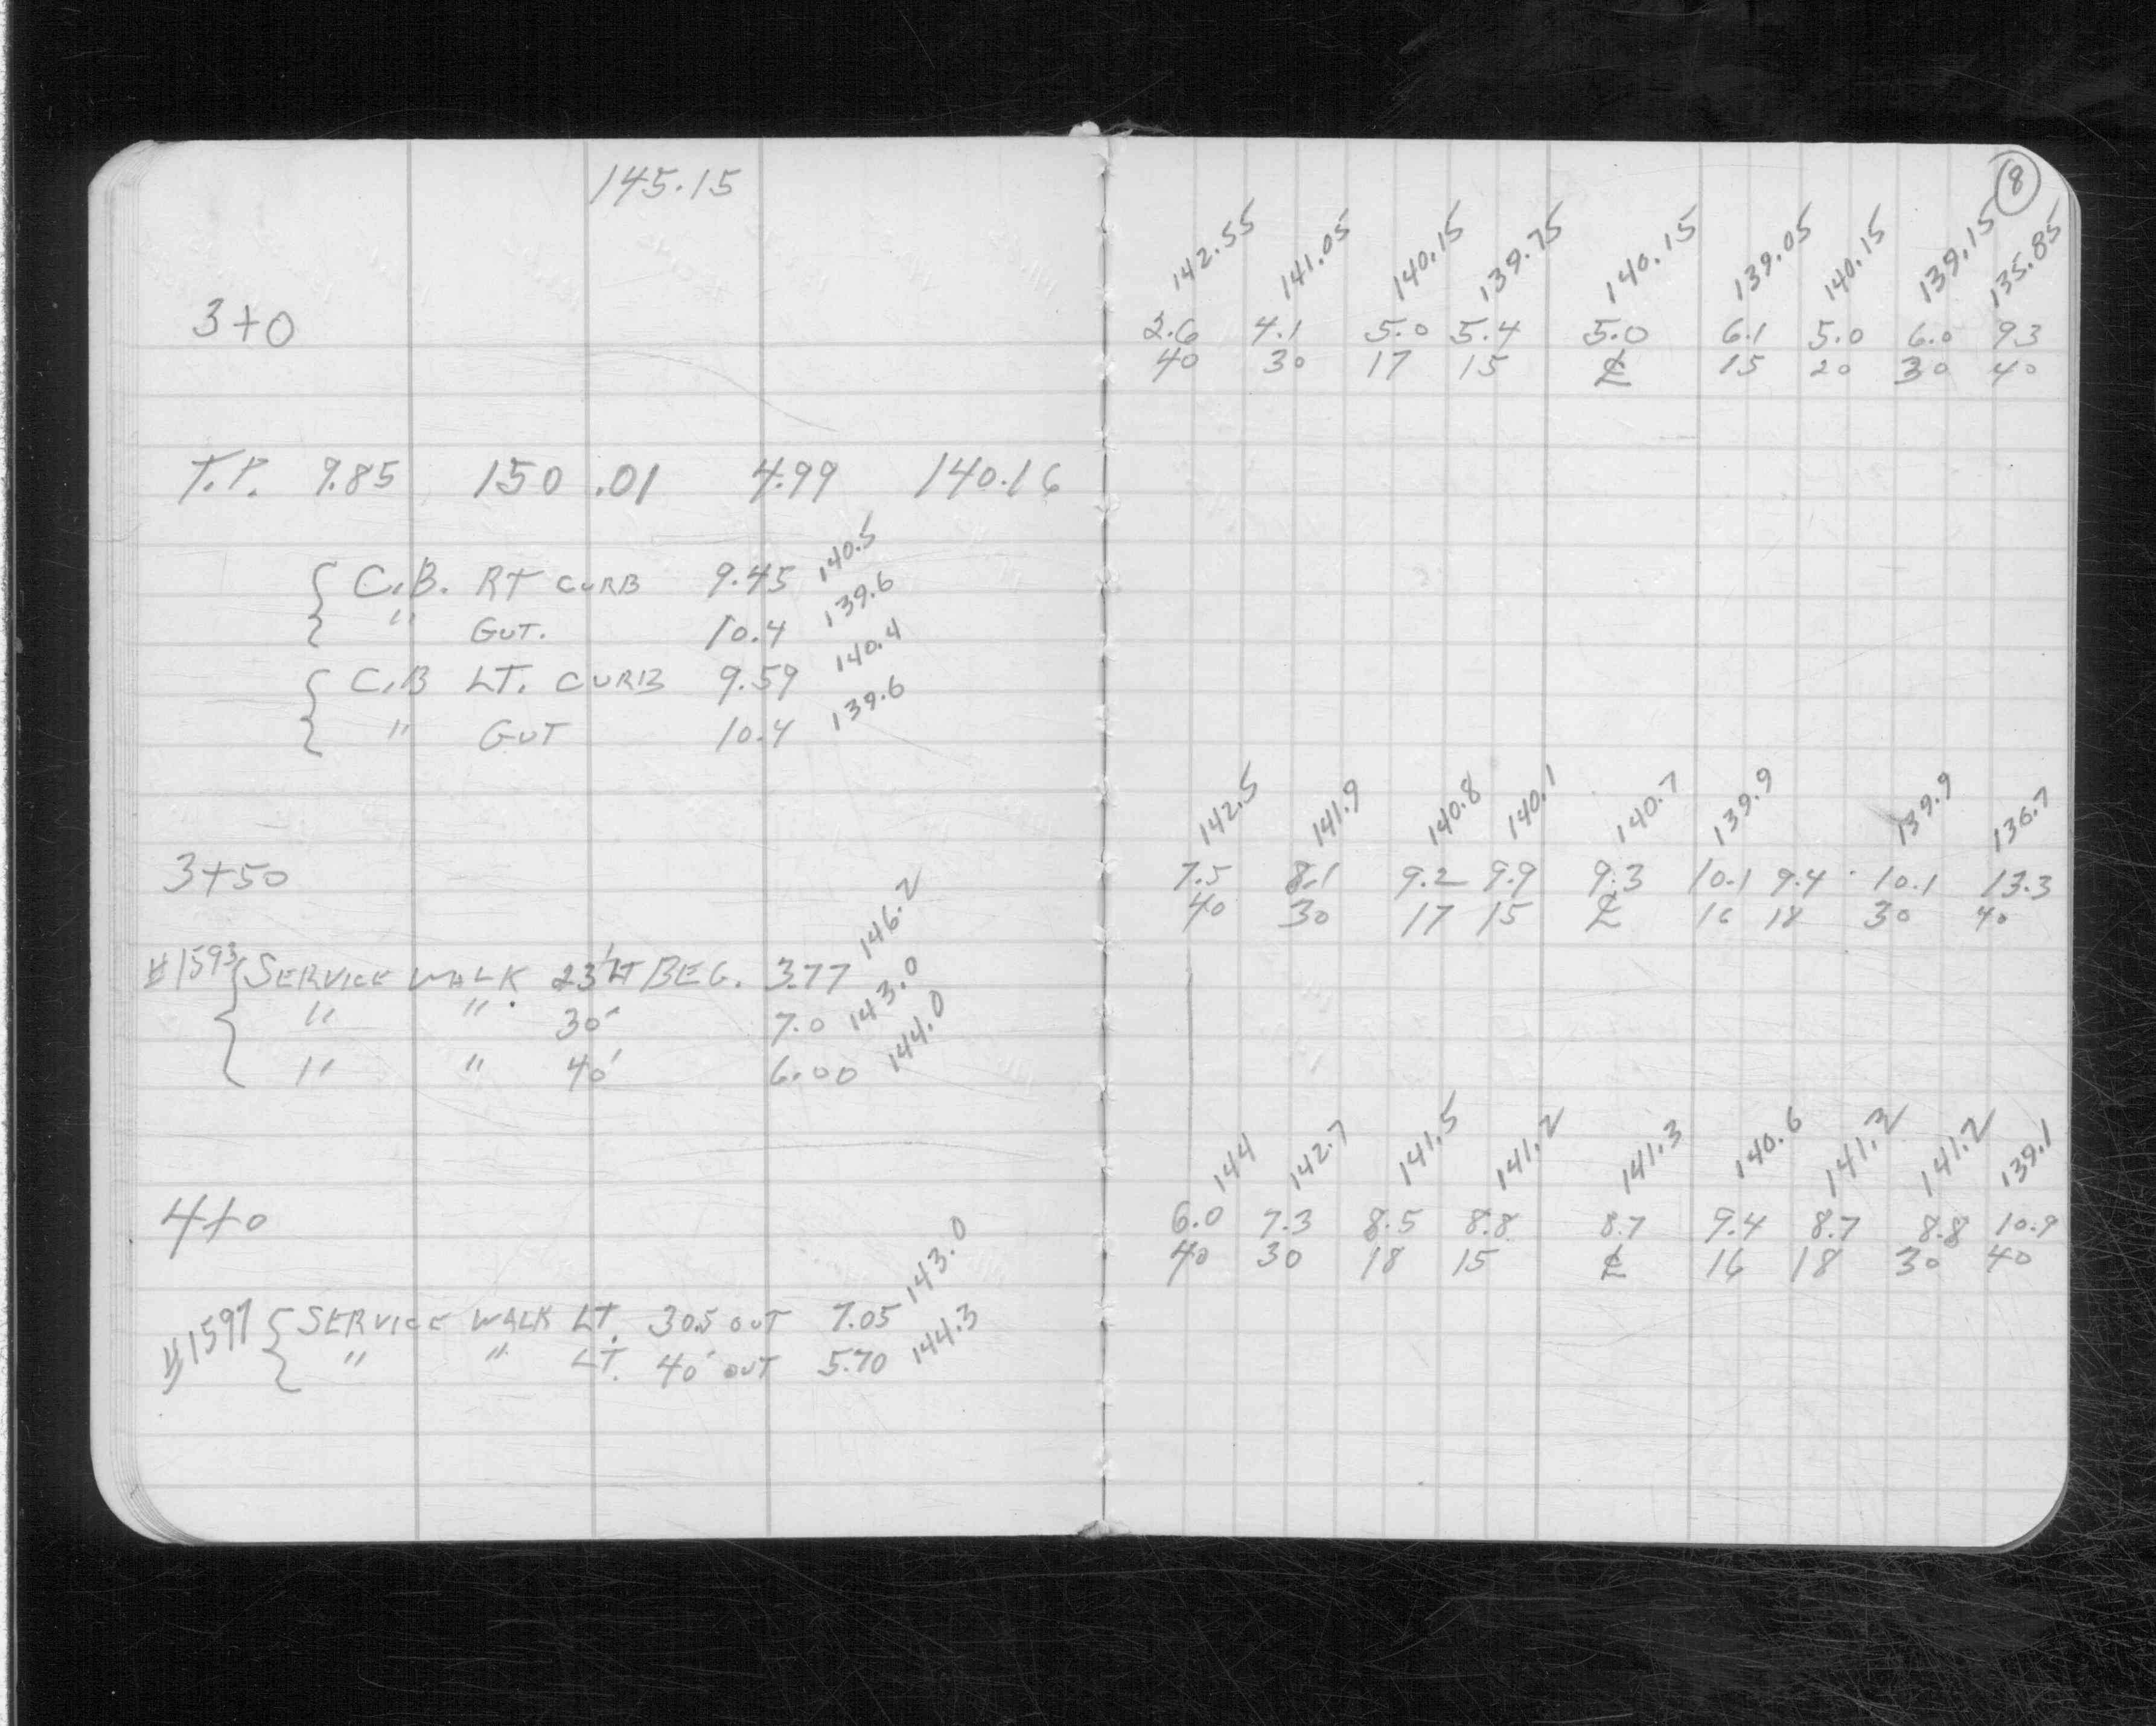 145.15
3+0
T.P. 9.85 150.01 4.99 140.16
{ C.B. RT CURB 9.45 140.5
" GUT. 10.4 139.6
{ C.B LT. CURB 9.59 140.4
" GUT 10.4 139.6
3+50
#1593 { SERVICE WALK 23' LT BEG. 3.77 146.2
" " 30' 7.0 143.0
" " 40' 6.00 144.0
4+0
#1597 { SERVICE WALK LT. 30.5 OUT 7.05 143.0
" " LT. 40' OUT 5.70 144.3
8
142.55 141.05 140.15 139.75 140.15 139.05 140.15 139.15 135.85
2.6 4.1 5.0 5.4 5.0 6.1 5.0 6.0 9.3
40 30 17 15 ℄ 15 20 30 40
142.5 141.9 140.8 140.1 140.7 139.9 139.9 136.7
7.5 8.1 9.2 9.9 9.3 10.1 9.4 10.1 13.3
40 30 17 15 ℄ 16 18 30 40
144 142.7 141.5 141.2 141.3 140.6 141.3 141.2 139.1
6.0 7.3 8.5 8.8 8.7 9.4 8.7 8.8 10.9
40 30 18 15 ℄ 16 18 30 40